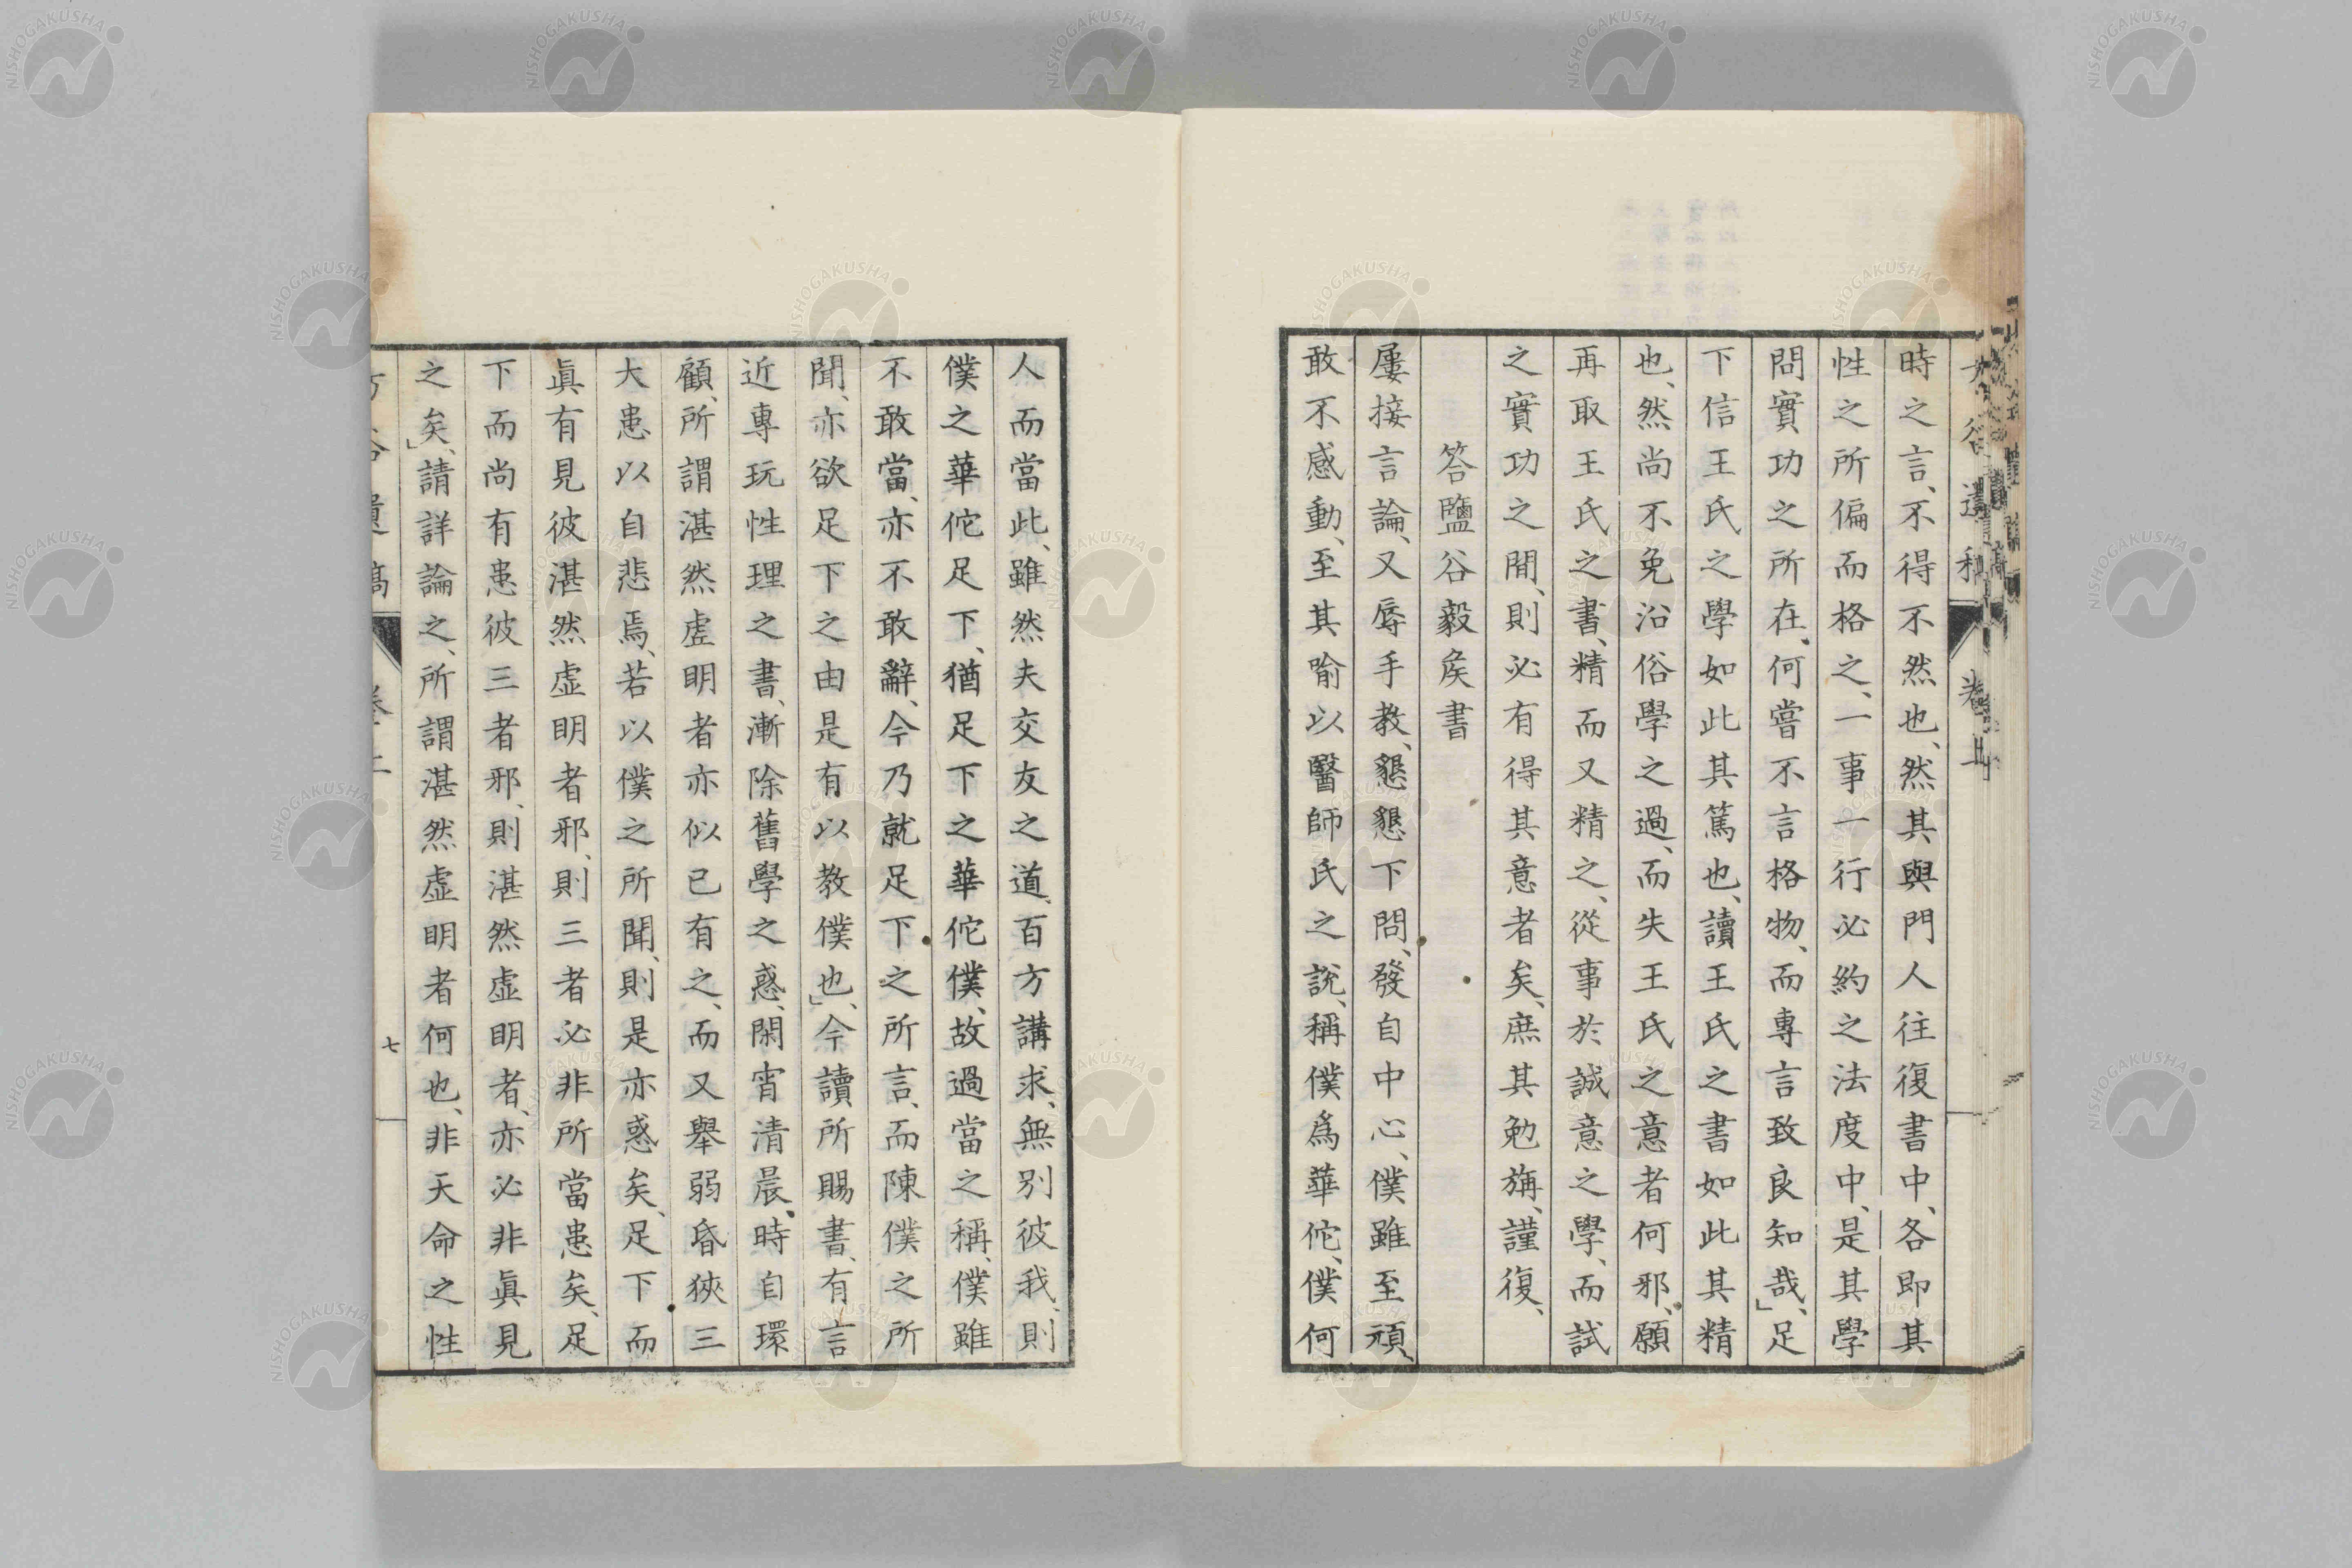 時之言、不得不然也、然其與門人往復書中、各即其
性之所偏而格之、一事一行必約之法度中、是其學
問實功之所在、何嘗不言格物、而專言致良知哉」、足
下信王氏之學如此其篤也、讀王氏之書如此其精
也、然尚不免沿俗學之過、而失王氏之意者何邪、願
再取王氏之書、精而又精之、從事於誠意之學、而試
之實功之間、則必有得其意者矣、庶其勉旃、謹復、
答鹽谷毅矦書
屢接言論、又辱手教、懇懇下問、發自中心、僕雖至頑、
敢不感動、至其喻以醫師氏之說、稱僕爲華佗、僕何
人而當此、雖然夫交友之道、百方講求、無別彼我、則
僕之華佗足下、猶足下之華佗僕、故過當之稱、僕雖
不敢當、亦不敢辭、今乃就足下之所言、而陳僕之所
聞、亦欲足下之由是有以教僕也」、今讀所賜書、有言
近專玩性理之書、漸除舊學之惑、閑宵清晨、時自環
顧、所謂湛然虛明者亦似已有之、而又舉弱昏狹三
大患以自悲焉、若以僕之所聞、則是亦惑矣、足下而
眞有見彼湛然虛明者邪、則三者必非所當患矣、足
下而尚有患彼三者邪、則湛然虛明者、亦必非眞見
之矣」、請詳論之、所謂湛然虛明者何也、非天命之性
七
NISHOGAKUSHA